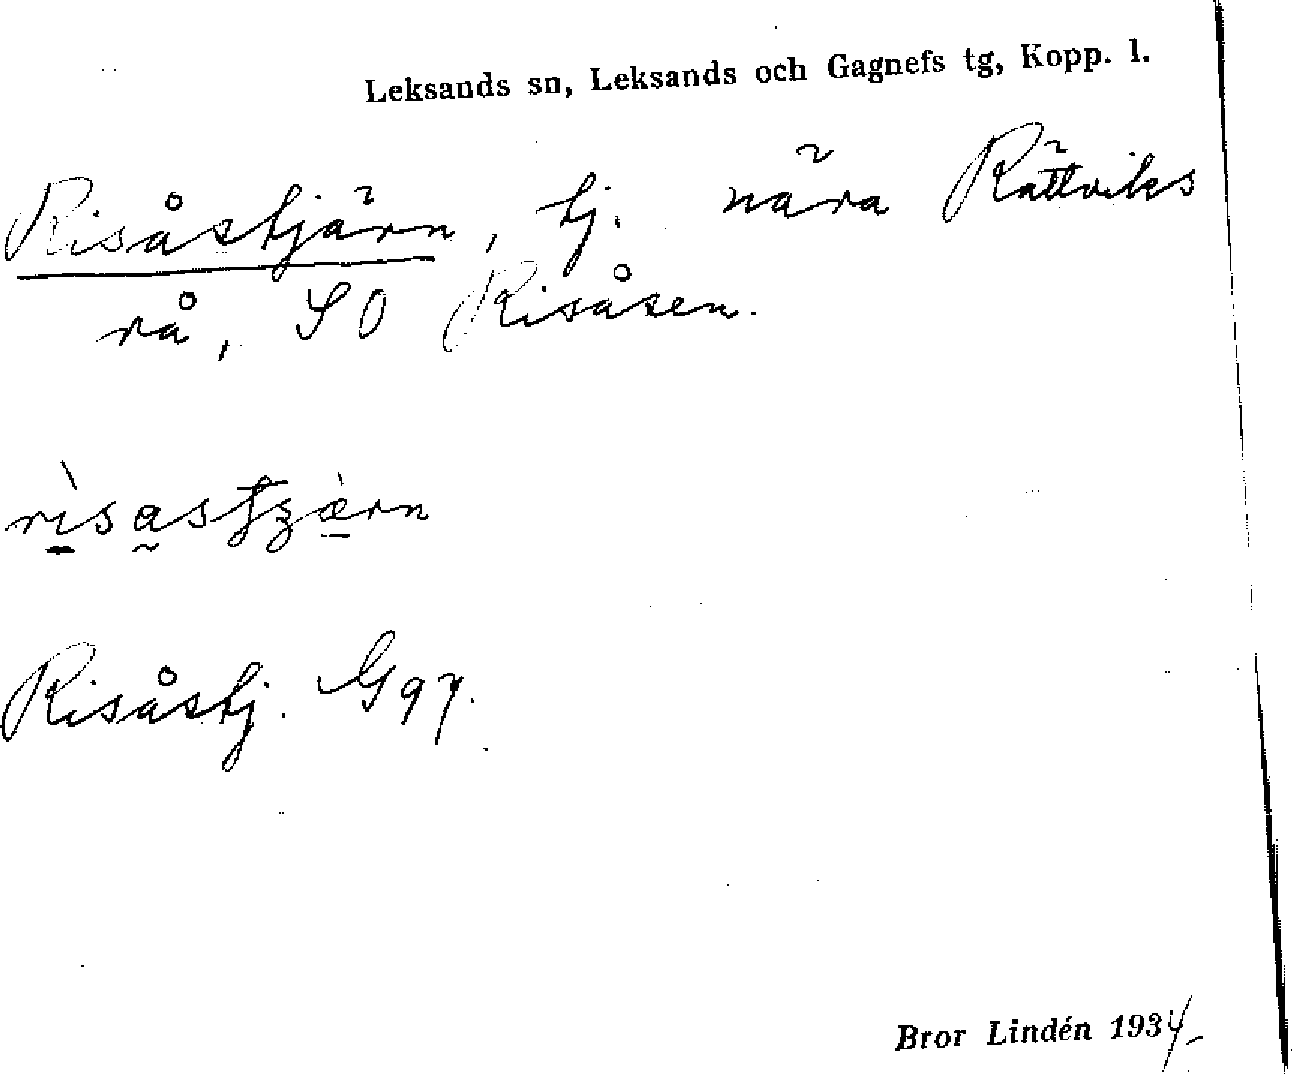 Leksands sn, Leksands och Gagnefs tg, Kopp. l.
Risåstjärn, tj. nära Rättviks
rå, SO Risåsen.
Risåstj. G 97.
Bror Lindén 1934